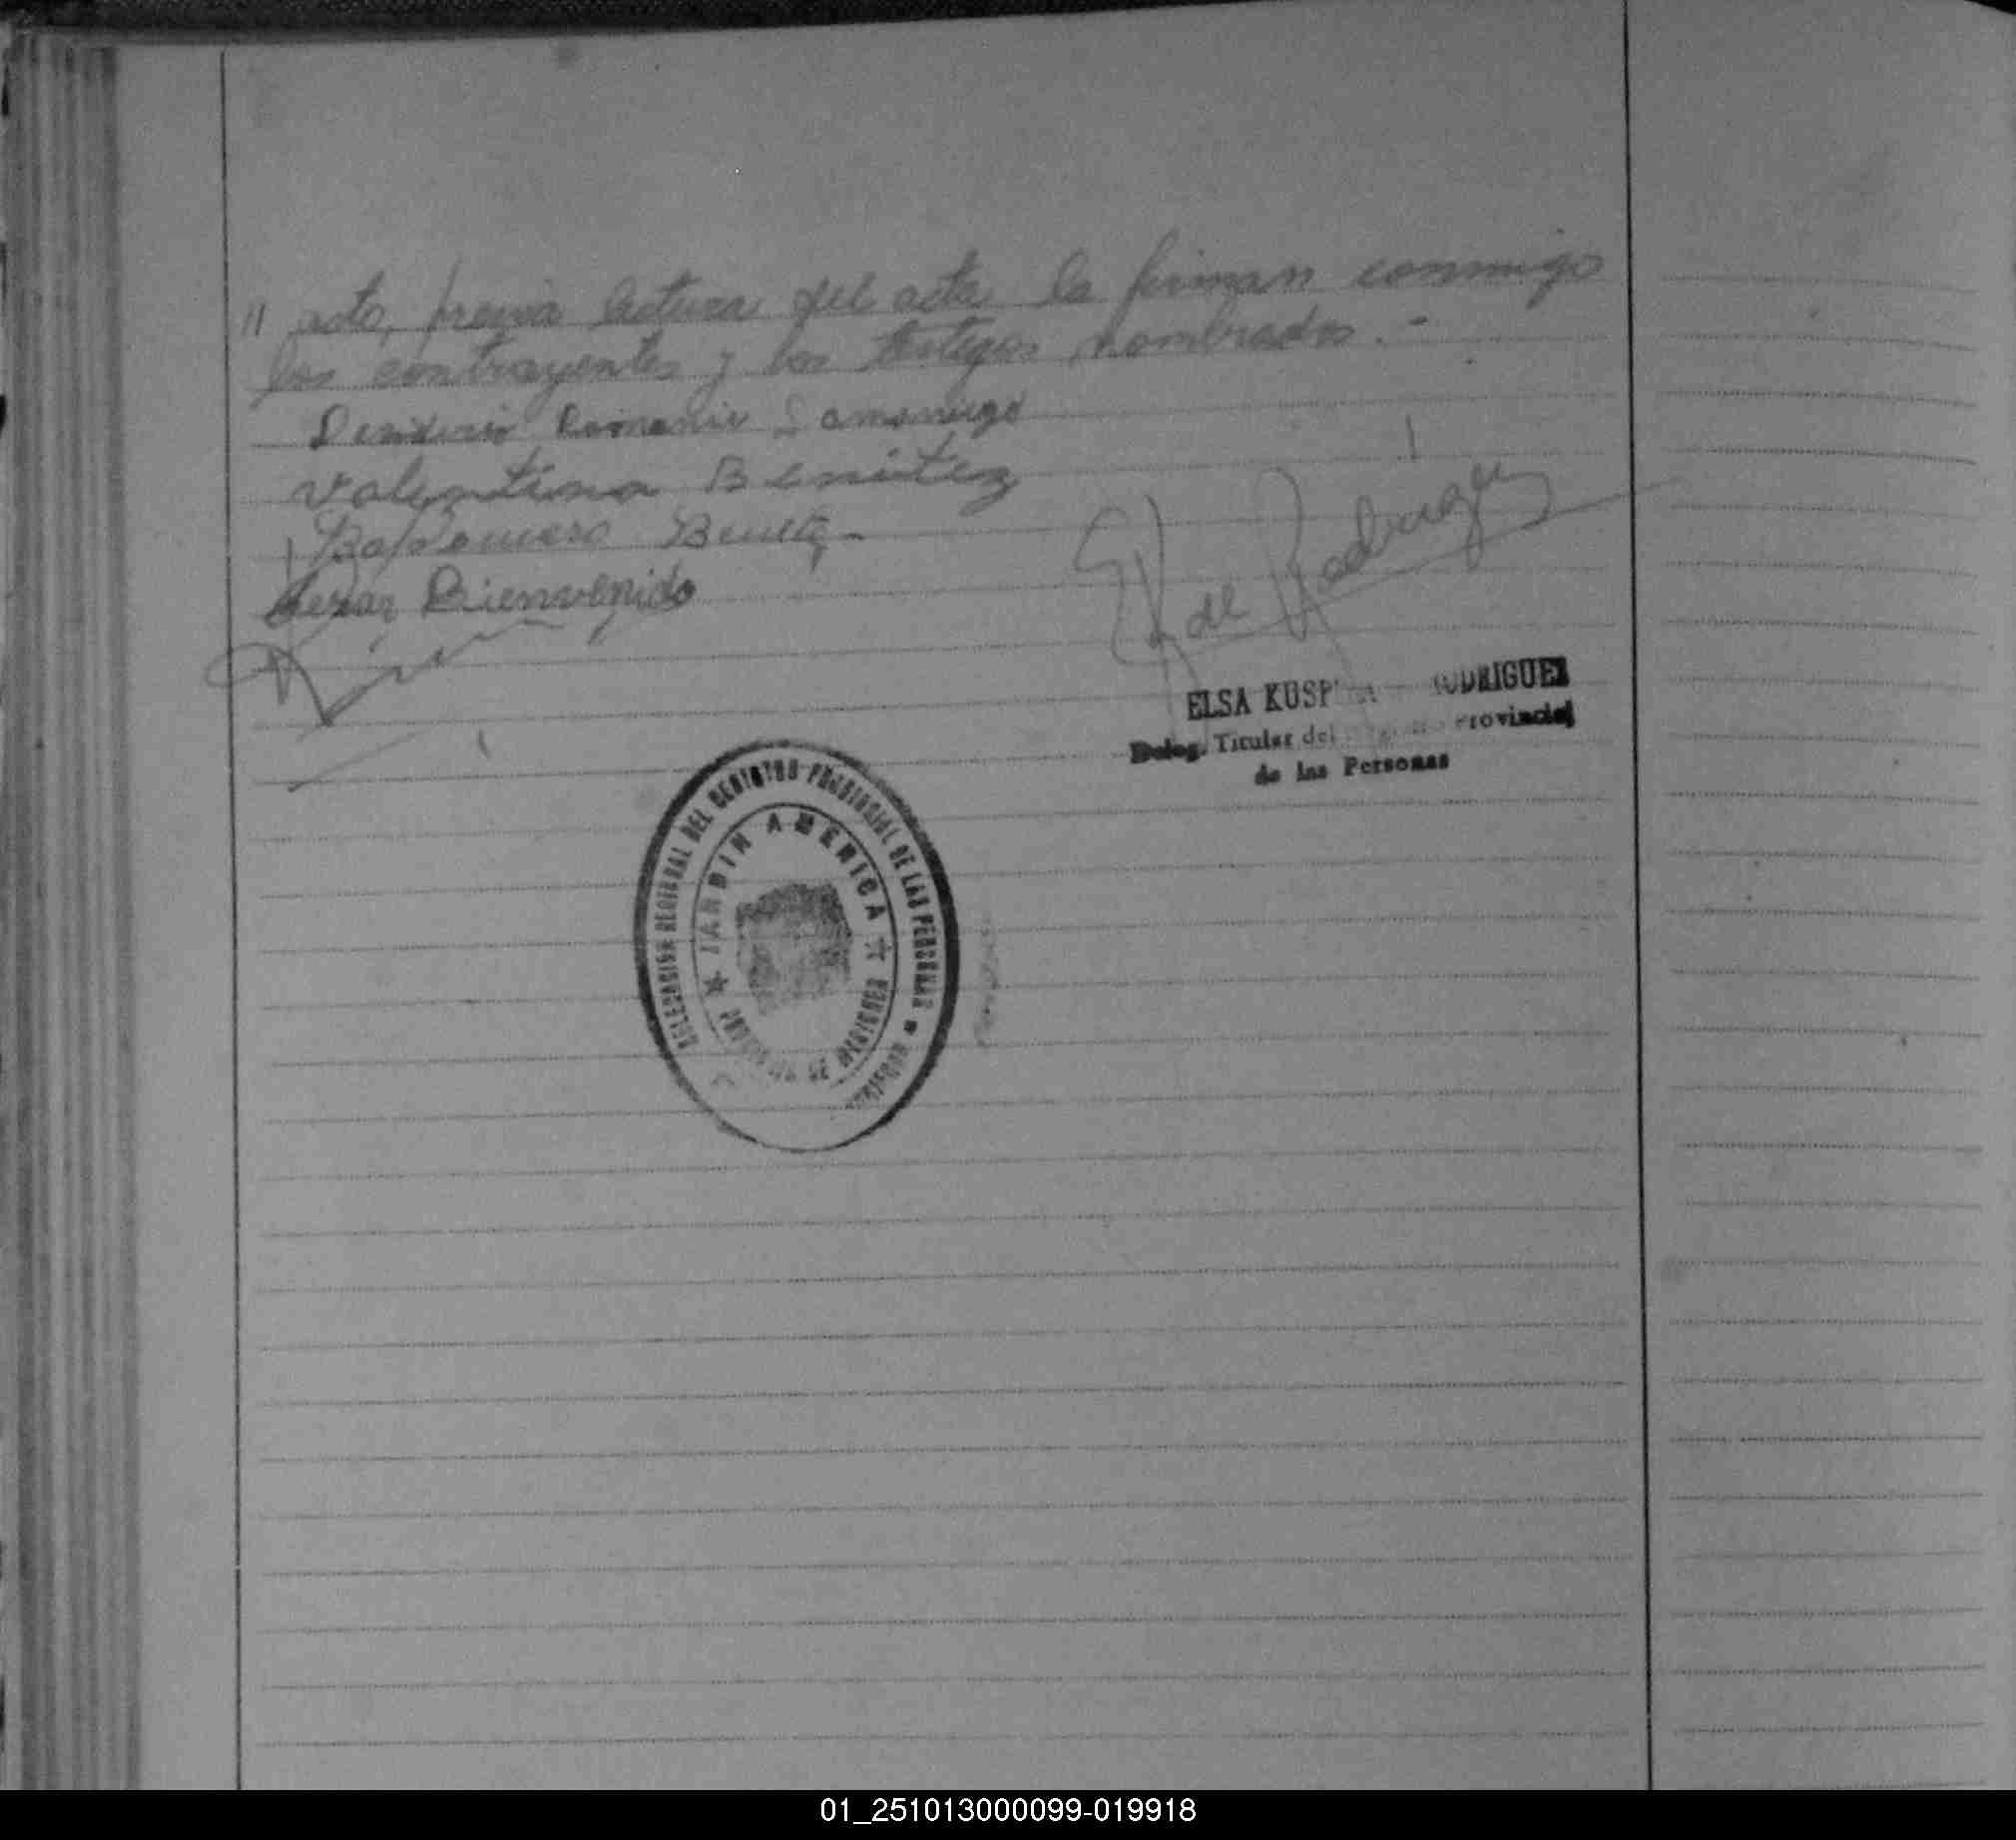 " acto, previa lectura del acta la firman conmigo
los contrayentes y los testigos nombrados.-
Desiderio Romanir Samaniego
Valentina Benitez
Baldomero Benitez
Cezar Bienvenido
E K de Rodriguez
ELSA KUSP RODRIGUEZ
Deleg. Titular del Provincial
de las Personas
DELEGACION REGIONAL DEL REGISTRO PROVINCIAL DE LAS PERSONAS
JARDIN AMERICA
PROVINCIA DE MISIONES
01_251013000099-019918